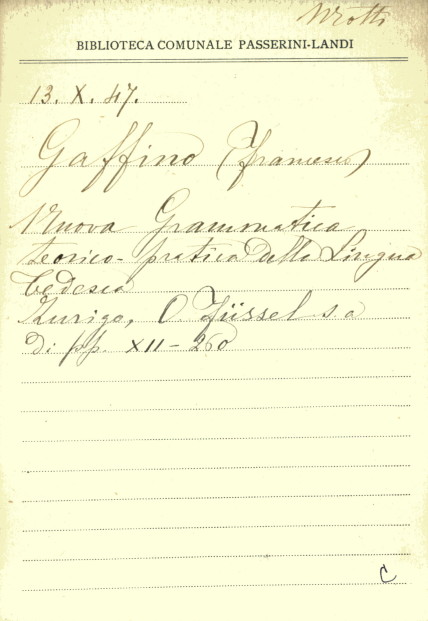 BIBLIOTECA COMUNALE PASSERINI-LANDI
13. X. 47.
Gaffino (Francesco)
Nuova Grammatica
teorico-pratica della Lingua
tedesca
Zurigo, O Füssel s a
di pp. XII-260
C